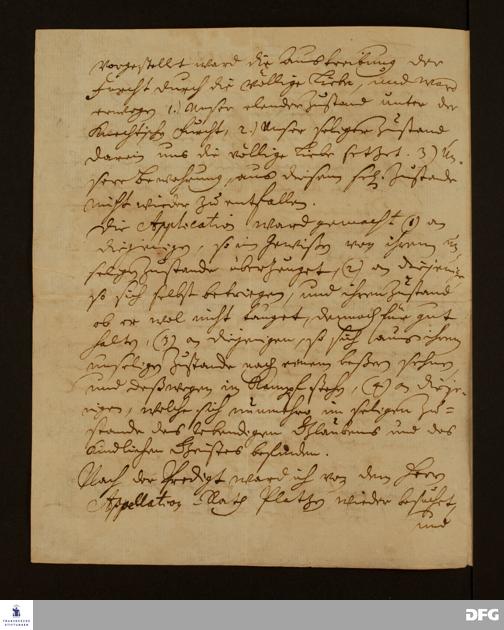 vorgestellt ward die Austreibung der
Furcht durch die völlige Liebe, und ward
erwogen 1.) Unser elender Zustand unter der
Knechtischen Furcht, 2.) Unser seliger Zustand
darein uns die völlige Liebe setzet. 3) Un-
sere Bewahrung, aus diesem sel. Zustande
nicht wieder zu entfallen.
Die Application ward gemacht (1) an
diejenigen, so im Gewissen von ihrem un-
seligen Zustande überzeuget, (2) an diejenige
so sich selbst betriegen, und ihren Zustand
ob er wol nicht tauget, dennoch für gut
halten, (3) an diejenigen, so sich aus ihrem
unseligen Zustande nach einem beßern sehnen,
und deßwegen in Kampf stehn, (4) an dieje-
nigen, welche sich nunmehro im seligen Zu-
stande des lebendigen Glaubens und des
kindlichen Geistes befinden.
Nach der Predigt ward ich von dem Herrn
Appellation-Rath Plathen wieder besuchet,
und
FRANCKESCHE
STIFTUNGEN
DFG